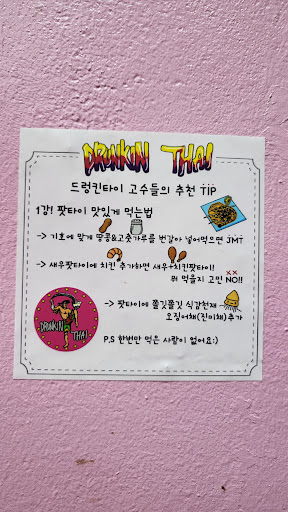 DRUNKIN THAI
드렁킨타이 고수들의 추천 TIP
1걉! 팟타이 맛있게 먹는법
-> 기호에 맞게 땅콩&고춧가루를 번갈아 넣어먹으면 JMT
-> 새우팟타이에 치킨 추가하면 새우+치킨팟타이!
뭐 먹을지 고민 NO!!
-> 팟타이에 쫄깃쫄깃 식감천재
오징어채(진미채)추가
P.S 한번만 먹은 사람이 없어요:)
DRUNKIN
THAI